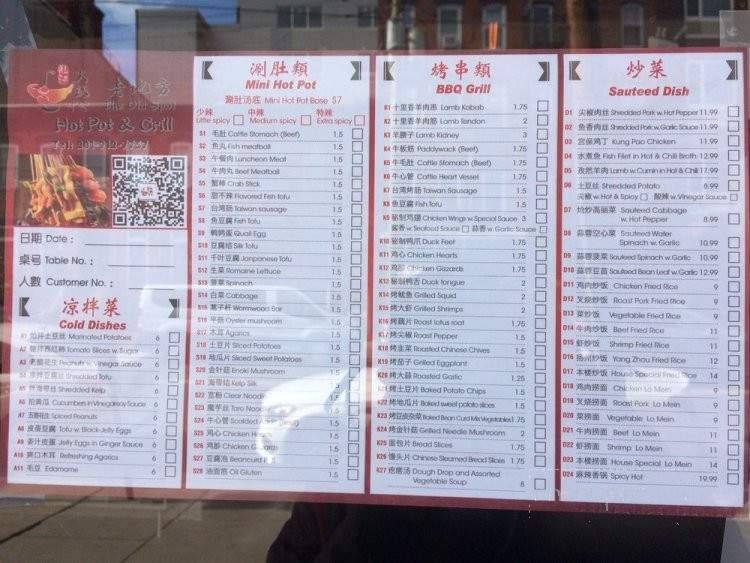 老地方
The Old Spot
Hot Pot & Grill
日期 Date :
桌号 Table No. :
人數 Customer No. :
凉拌菜
Cold Dishes
A1 Marinated Potatoes 6
A2 Tomato Slices w. Sugar 6
A3 Peanuts w. Vinegar Sauce 6
A4 Shredded Tofu 6
A5 Shredded Kelp 6
A6 拍黄瓜 Cucumbers in Vinegar Soy Sauce 6
A7 Spiced Peanuts 6
A8 皮蛋豆腐 Tofu w. Black Jelly Eggs 6
A9 姜汁皮蛋 Jelly Eggs in Ginger Sauce 6
A10 爽口木耳 Refreshing Agarics 6
A11 毛豆 Edamame 6
涮肚類
Mini Hot Pot
涮肚汤底 Mini Hot Pot Base $7
少辣 中辣 特辣
Little spicy Medium spicy Extra spicy
S1 毛肚 Cattle Stomach (Beef) 1.5
S2 鱼丸 Fish meatball 1.5
S3 午餐肉 Luncheon Meat 1.5
S4 牛肉丸 Beef Meatball 1.5
S5 蟹棒 Crab Stick 1.5
S6 甜不辣 Flavored Fish Tofu 1.5
S7 台湾肠 Taiwan sausage 1.5
S8 鱼豆腐 Fish Tofu 1.5
S9 鹌鹑蛋 Quail Egg 1.5
S10 豆腐结 Silk Tofu 1.5
S11 千叶豆腐 Janponese Tofu 1.5
S12 生菜 Romaine Lettuce 1.5
S13 菠菜 Spinach 1.5
S14 白菜 Cabbage 1.5
S15 蒿子杆 Wormwood Bar 1.5
S16 平菇 Oyster mushroom 1.5
S17 木耳 Agarics 1.5
S18 土豆片 Sliced Potatoes 1.5
S19 地瓜片 Sliced Sweet Potatoes 1.5
S20 金针菇 Enoki Mushroom 1.5
S21 海带结 Kelp Silk
S22 宽粉 Clear Noodle
S23 魔芋丝 Taro Noodle
S24 牛心管 Scalded Aorta
S25 鸡心 Chicken
S26 鸡胗 Chicken Gizzards
S27 豆腐泡 Beancurd
S28 油面筋 Oil Gluten 1.5
烤串類
BBQ Grill
K1 十里香羊肉串 Lamb Kabab 1.75
K2 十里香羊肉筋 Lamb Tendon 2
K3 羊腰子 Lamb Kidney 3
K4 牛板筋 Paddywack (Beef) 1.75
K5 牛毛肚 Cattle Stomach (Beef) 1.75
K6 牛心管 Cattle Heart Vessel 1.75
K7 台湾肠 Taiwan Sausage 1.5
K8 鱼豆腐 Fish Tofu 1.5
K9 秘制鸡翅 Chicken Wings w. Special Sauce 3
酱香 w. Seafood Sauce 蒜香 w. Garlic Sauce
K10 秘制鸭爪 Duck Feet 1.75
K11 鸡心 Chicken Hearts 1.75
K12 鸡胗 Chicken Gizzards 1.75
K13 秘制鸭舌 Duck tongue 2
K14 烤鱿鱼 Grilled Squid 2
K15 烤大虾 Grilled Shrimps 2
K16 烤藕片 Roast lotus root 1.75
K17 烤尖椒 Roast Pepper 1.5
K18 烤韭菜 Roasted Chinese Chives 1.5
K19 烤茄子 Grilled Eggplant 1.5
K20 烤大蒜 Roasted Garlic 1.25
K21 烤土豆片 Baked Potato Chips 1.5
K22 烤地瓜片 Baked sweet potato slices 1.5
K23 烤豆皮 Baked Bean Curd Mix Vegetables 1.75
K24 烤金针菇 Grilled Needle Mushroom 2
K25 面包片 Bread Slices 1.75
K26 馒头片 Chinese Steamed Bread Slices 1.75
K27 疙瘩汤 Dough Drop and Assorted
Vegetable Soup 8
炒菜
Sauteed Dish
D1 尖椒肉丝 Shredded Pork w. Hot Pepper 11.99
D2 鱼香肉丝 Shredded Pork w. Garlic Sauce 11.99
D3 宫保鸡丁 Kung Pao Chicken 11.99
D4 水煮鱼 Fish Filet in Hot & Chili Broth 12.99
D5 孜然羊肉 Lamb w. Cumin in Hot & Chili 17.99
D6 土豆丝 Shredded Potato 8.99
尖椒 w. Hot & Spicy 酸辣 w. Vinegar Sauce
D7 炝炒高丽菜 Sauteed Cabbage
w. Hot Pepper 8.99
D8 蒜蓉空心菜 Sauteed Water
Spinach w. Garlic 10.99
D9 蒜蓉菠菜 Sauteed Spinach w. Garlic 10.99
D10 蒜蓉豆苗 Sauteed Bean Leaf w. Garlic 12.99
D11 鸡肉炒饭 Chicken Fried Rice 11
D12 叉烧炒饭 Roast Pork Fried Rice 11
D13 菜炒饭 Vegetable Fried Rice 11
D14 牛肉炒饭 Beef Fried Rice 11
D15 虾炒饭 Shrimp Fried Rice 11
D16 扬州炒饭 Yang Zhou Fried Rice 12
D17 本楼炒饭 House Special Fried Rice 14
D18 鸡肉捞面 Chicken Lo Mein 11
D19 叉烧捞面 Roast Pork Lo Mein 11
D20 菜捞面 Vegetable Lo Mein 11
D21 牛肉捞面 Beef Lo Mein 11
D22 虾捞面 Shrimp Lo Mein 11
D23 本楼捞面 House Special Lo Mein 14
D24 麻辣香锅 Spicy Hot 19.99